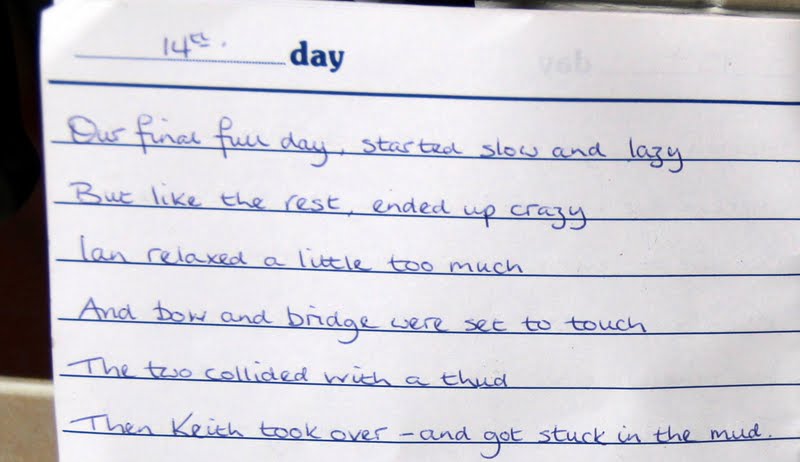 14th. day
Our final full day, started slow and lazy
But like the rest, ended up crazy
Ian relaxed a little too much
And bow and bridge were set to touch
The two collided with a thud
Then Keith took over - and got stuck in the mud.